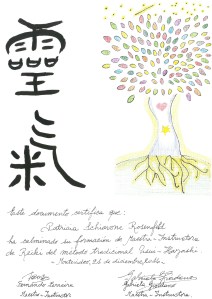 靈
氣
Este documento certifica que:
Patricia Schiavone Rosenfeld
ha culminado su formación de Maestra - Instructora
de Reiki del método tradicional Usui - Hayashi
- Montevideo, 28 de diciembre,
Fernando Pereira
Maestro - Instructor
Gabriela Giordano
Maestra - Instructora